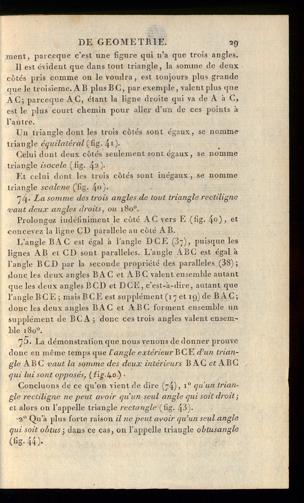 DE GEOMETRIE. 29
ment, parceque c'est une figure qui n'a que trois angles.
Il est évident que dans tout triangle, la somme de deux
côtés pris comme on le voudra, est toujours plus grande
que le troisieme. AB plus BC, par exemple, valent plus que
AC; parceque AC, étant la ligne droite qui va de A à C,
est le plus court chemin pour aller d'un de ces points à
l'autre.
Un triangle dont les trois côtés sont égaux, se nomme
triangle équilatéral (fig. 41).
Celui dont deux côtés seulement sont égaux, se nomme
triangle isocele (fig. 42).
Et celui dont les trois côtés sont inégaux, se nomme
triangle scalene (fig. 40).
74. La somme des trois angles de tout triangle rectiligne
vaut deux angles droits, ou 180°.
Prolongez indéfiniment le côté AC vers E (fig. 40), et
concevez la ligne CD parallele au côté AB.
L'angle BAC est égal à l'angle DCE (37), puisque les
lignes AB et CD sont paralleles. L'angle ABC est égal à
l'angle BCD par la seconde propriété des paralleles (38);
donc les deux angles BAC et ABC valent ensemble autant
que les deux angles BCD et DCE, c'est-à-dire, autant que
l'angle BCE; mais BCE est supplément (17 et 19) de BCA;
donc les deux angles BAC et ABC forment ensemble un
supplément de BCA; donc ces trois angles valent ensem-
ble 180°.
75. La démonstration que nous venons de donner prouve
donc en même temps que l'angle extérieur BCE d'un trian-
gle ABC vaut la somme des deux intérieurs BAC et ABC
qui lui sont opposés, (fig. 40.)
Concluons de ce qu'on vient de dire (74), 1° qu'un trian-
gle rectiligne ne peut avoir qu'un seul angle qui soit droit;
et alors on l'appelle triangle rectangle (fig. 43).
2° Qu'à plus forte raison il ne peut avoir qu'un seul angle
qui soit obtus; dans ce cas, on l'appelle triangle obtusangle
(fig. 44).